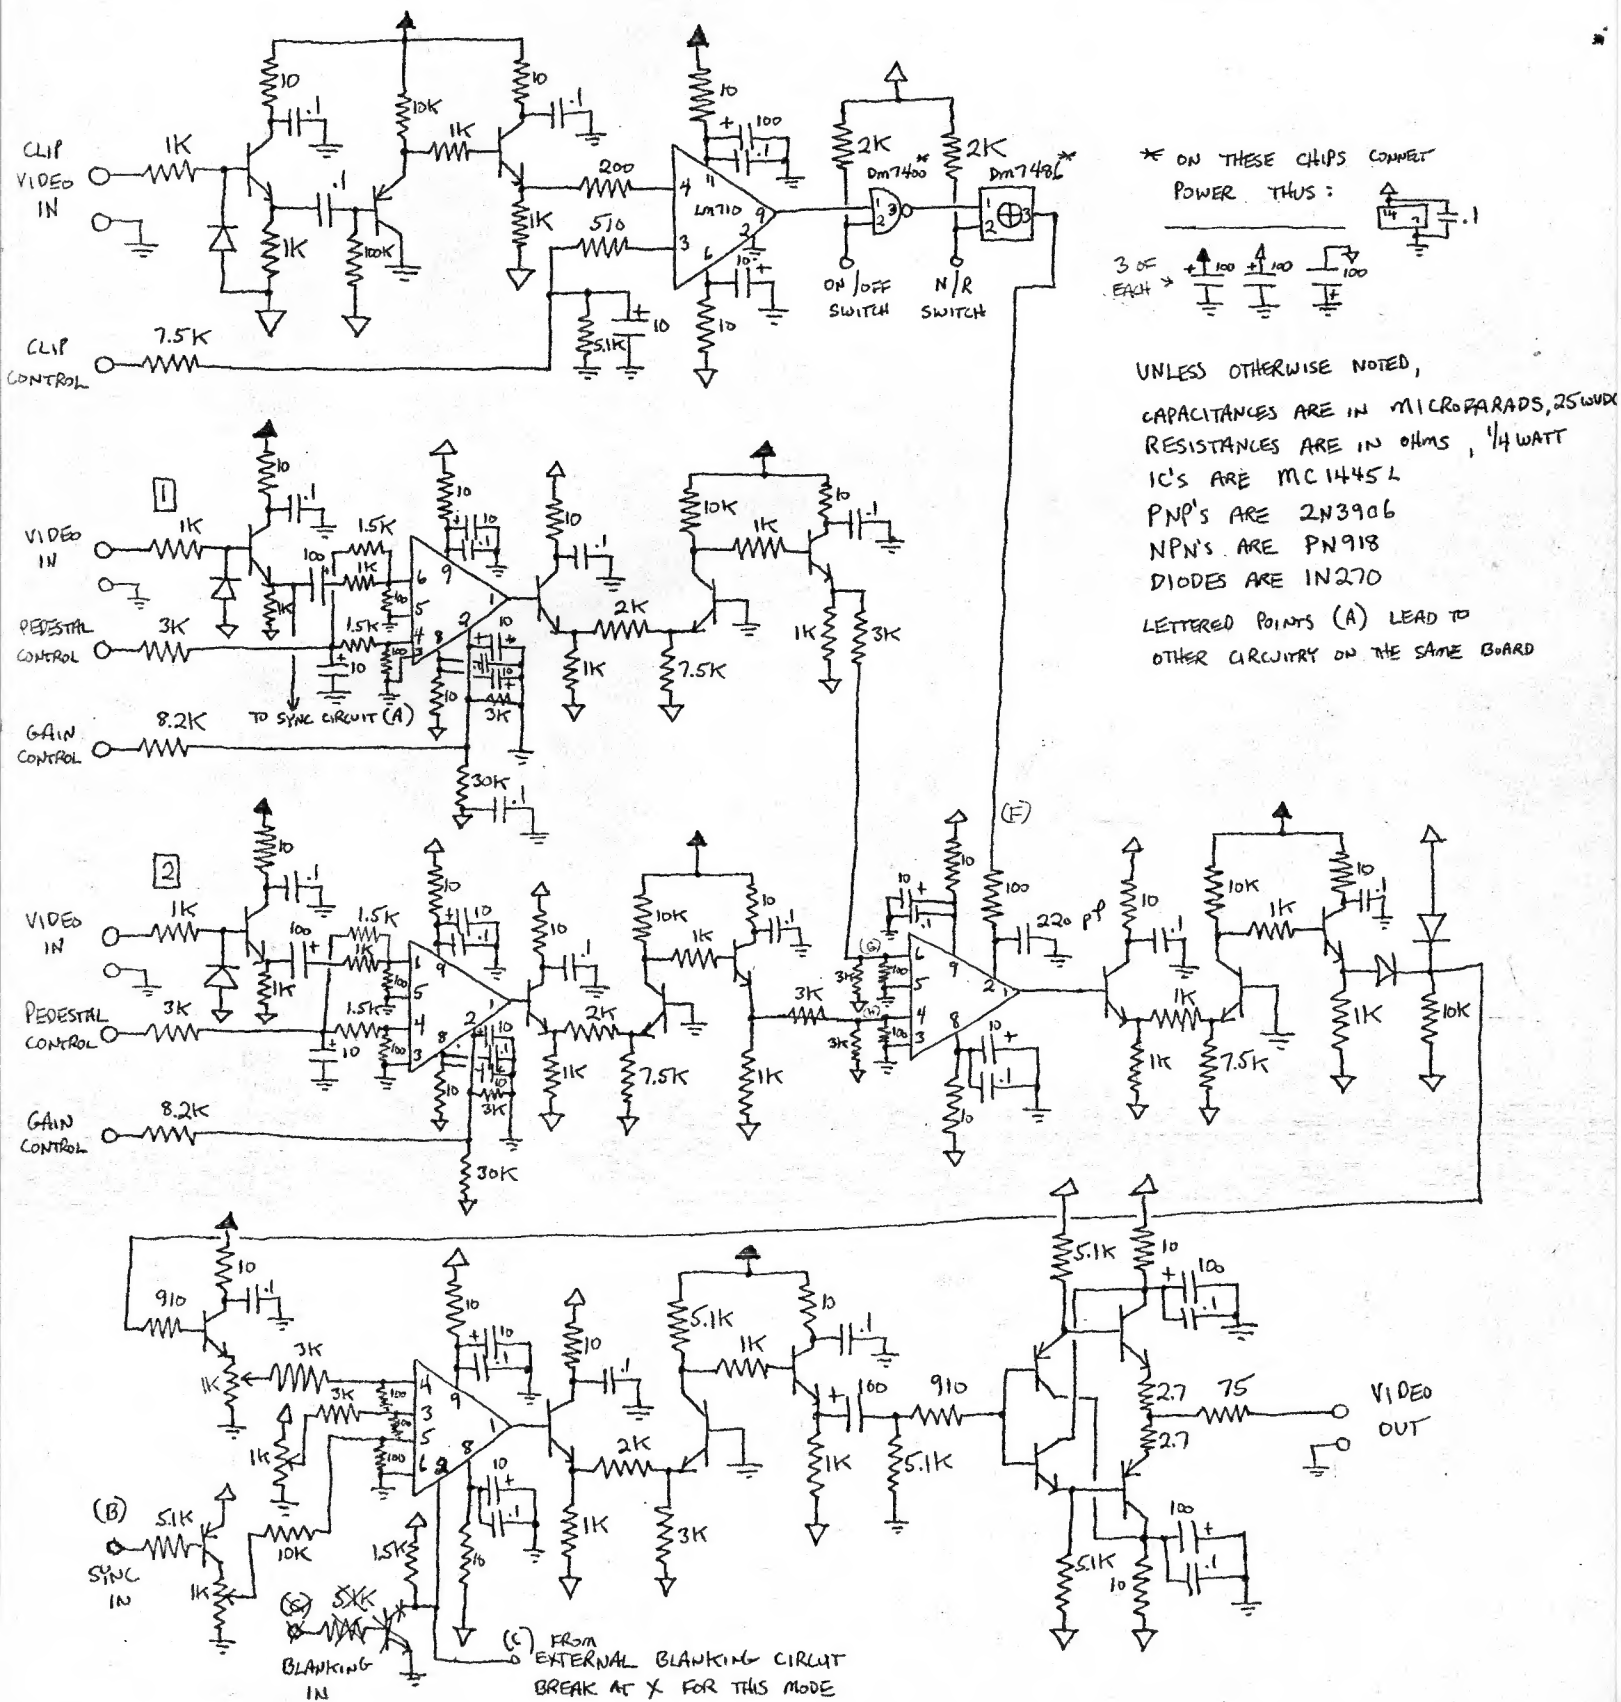 CLIP
VIDEO
IN
1K
10
.1
1K
.1
100K
10K
1K
10
.1
1K
200
510
4
3
LM710
11
9
2
6
10
+ 100
.1
10 +
10
5.1K
+ 10
CLIP
CONTROL
7.5K
2K
2K
DM7400 *
1
2
3
DM7486 *
1
2
3
ON/OFF
SWITCH
N/R
SWITCH
* ON THESE CHIPS CONNECT
POWER THUS:
14
7
.1
3 OF
EACH
+ 100
+ 100
100
+
UNLESS OTHERWISE NOTED,
CAPACITANCES ARE IN MICROFARADS, 25WVDC
RESISTANCES ARE IN OHMS, 1/4 WATT
IC'S ARE MC1445L
PNP'S ARE 2N3906
NPN'S ARE PN918
DIODES ARE 1N270
LETTERED POINTS (A) LEAD TO
OTHER CIRCUITRY ON THE SAME BOARD
1
VIDEO
IN
1K
10
.1
1K
100
+
1.5K
1K
1.5K
100
100
6
5
4
3
9
1
2
8
10
+ 10
.1
10
+
10
+
3K
10
PEDESTAL
CONTROL
3K
+ 10
TO SYNC CIRCUIT (A)
GAIN
CONTROL
8.2K
30K
.1
10
.1
2K
1K
7.5K
10K
1K
10
.1
1K
3K
2
VIDEO
IN
1K
10
.1
1K
100
+
1.5K
1K
1.5K
100
100
6
5
4
3
9
1
2
8
10
+ 10
.1
10
.1
10
3K
10
PEDESTAL
CONTROL
3K
+ 10
GAIN
CONTROL
8.2K
30K
10
.1
2K
1K
7.5K
10K
1K
10
.1
1K
3K
3K
3K
(G)
(H)
100
100
6
5
4
3
9
2
1
8
10
+
.1
10
100
(F)
220 pf
10
+
.1
10
10
.1
1K
1K
7.5K
10K
1K
10
.1
1K
10K
910
10
.1
1K
3K
3K
1K
100
100
100
4
3
5
6
9
1
8
2
10
+ 10
.1
10
+
.1
10
(B)
SYNC
IN
5.1K
1K
10K
1.5K
BLANKING
IN
(C) FROM
EXTERNAL BLANKING CIRCUT
BREAK AT X FOR THIS MODE
10
.1
2K
1K
3K
5.1K
1K
10
.1
1K
+ 100
5.1K
910
5.1K
10
+ 100
.1
2.7
2.7
75
VIDEO
OUT
5.1K
10
100
+
.1